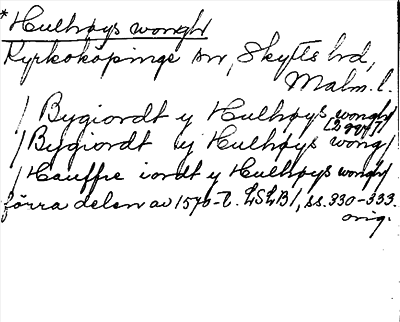 *Hulhøys wongh
Kyrkoköpinge sn, Skytts hd,
Malm. l.
/ Bygiordt y Hulhøys wongh/
[2 ggr]
/ Bygiordt y Hulhøys wong/
/ Hauffre iordt y Hulhøys wongh/
förra delen av 1570-t. LSLB 1, ss. 330-333.
orig.